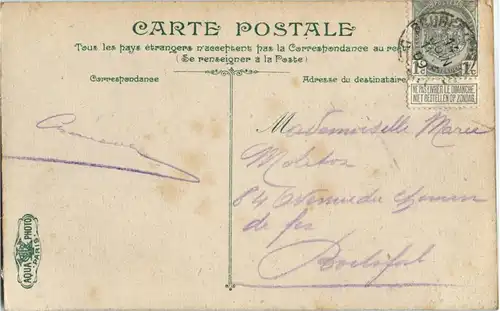 CARTE POSTALE
Tous les pays étrangers n'acceptent pas la Correspondance au
(Se renseigner à la Poste)
Correspondance
Adresse du destinataire
1 1
NE PAS LIVRER LE DIMANCHE
NIET BESTELLEN OP ZONDAG
Mademoiselle Marie
84 Avenue du chemin
de fer
Rochefort
AQUA PHOTO
PARIS